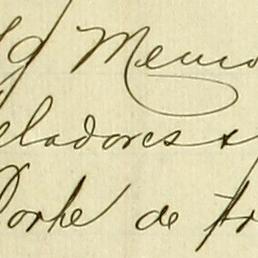 y Memo
eladores &
Porte de tr